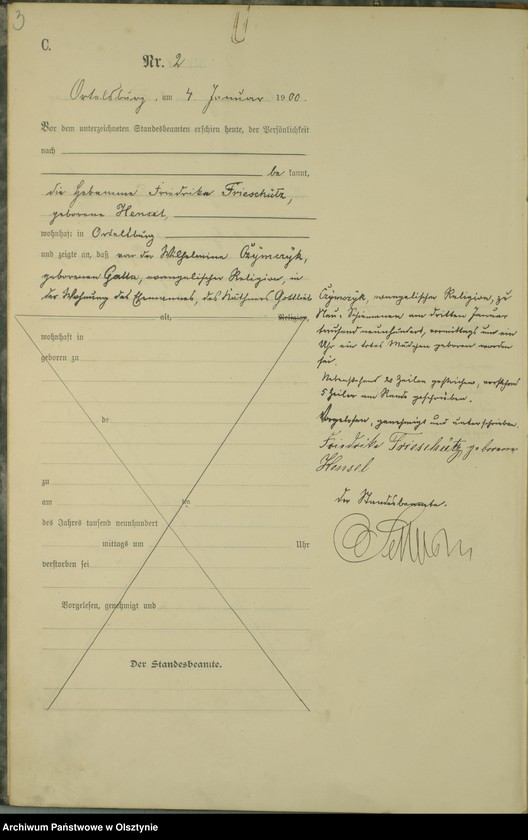 3
C.
Nr. 2
Ortelsburg, am 4 Januar 1900.
Vor dem unterzeichneten Standesbeamten erschien heute, der Persönlichkeit
nach
be kannt,
die Hebamme Friedrike Frieschütz,
geborene Hensel,
wohnhaft in Ortelsburg
und zeigte an, daß von der Wilhelmine Czymczyk,
geborenen Galla, evangelischer Religion, in
der Wohnung des Ehemannes, des Käthners Gottlieb
alt, Religion,
wohnhaft in
geboren zu
de
zu
am ten
des Jahres tausend neunhundert
mittags um Uhr
verstorben sei
Vorgelesen, genehmigt und
Der Standesbeamte.
Czymczyk, evangelischer Religion, zu
Neu-Schiemanen am dritten Januar
tausend neunhundert, vormittags um ein
Uhr ein totes Mädchen geboren worden
sei.
Nebenstehend Zeilen gestrichen, vorstehend
5 Zeilen am Rande geschrieben.
Vorgelesen, genehmigt und unterschrieben.
Friedrike Frieschütz, geborene
Hensel
Der Standesbeamte.
Archiwum Państwowe w Olsztynie